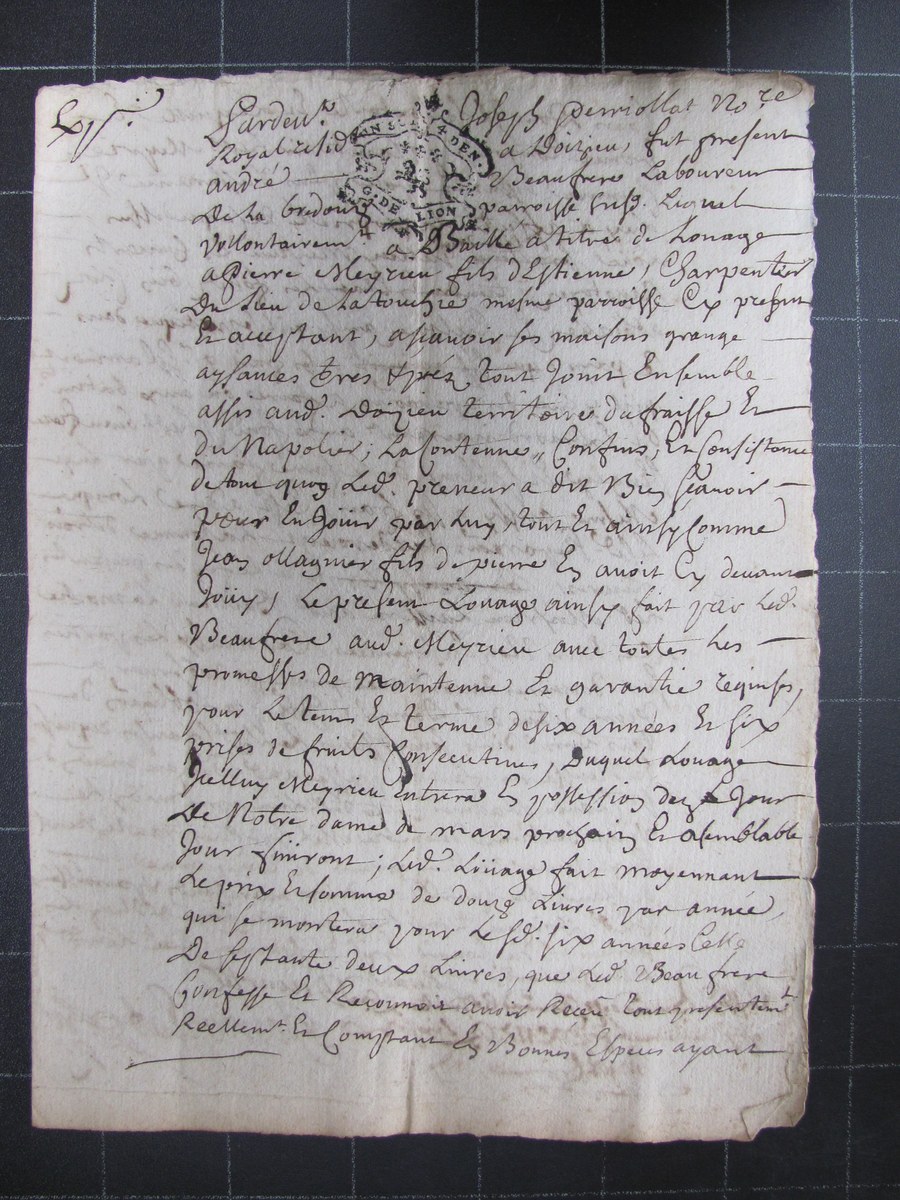 Exp.
Pardev.t Joseph Perriollat No.re
Royal resid a Doizieu, fut present
andré Beaufrere Laboureur
De La bredour parroisse susd. Lequel
vollontairem.t a Baillé a titre de Louage
a Pierre Meyrieu fils d'Estienne, Charpentier
Du Lieu de La touchie mesme parroisse Cy present
Et acceptant, asçavoir ses maisons grange
aysances tres & préz tout Joint Ensemble
assis aud. Doizieu territoire du fraisse Et
du Napolier, La Contenue, Confins, Et Consistance
de tout quoy Led. preneur a dit Bien sçavoir
pour En Jouir par luy, tout Et ainsy Comme
Jean ollagnier fils de pierre En avoit Cy devant
Joüy, Le present Louage ainsy fait par Led.
Beaufrere aud. Meyrieu avec toutes Les
promesses de maintenue Et garantie requises,
pour Le tems Et terme de six années Et six
prises de fruits Consecutives, Duquel Louage
Icelluy Meyrieu Entrera En possession dez Le Jour
De Notre dame de mars prochain Et a semblable
Jour finiront; Led. Loüage fait moyennant
Le prix Et somme de douze Livres par année,
qui se montera pour Lesd. six années Celle
De septante deux Livres, que Led. Beaufrere
Confesse Et Reconnoit avoir Receu tout presentem.t
Reellem.t Et Comptant En Bonnes Especes ayant
GN. DE LION